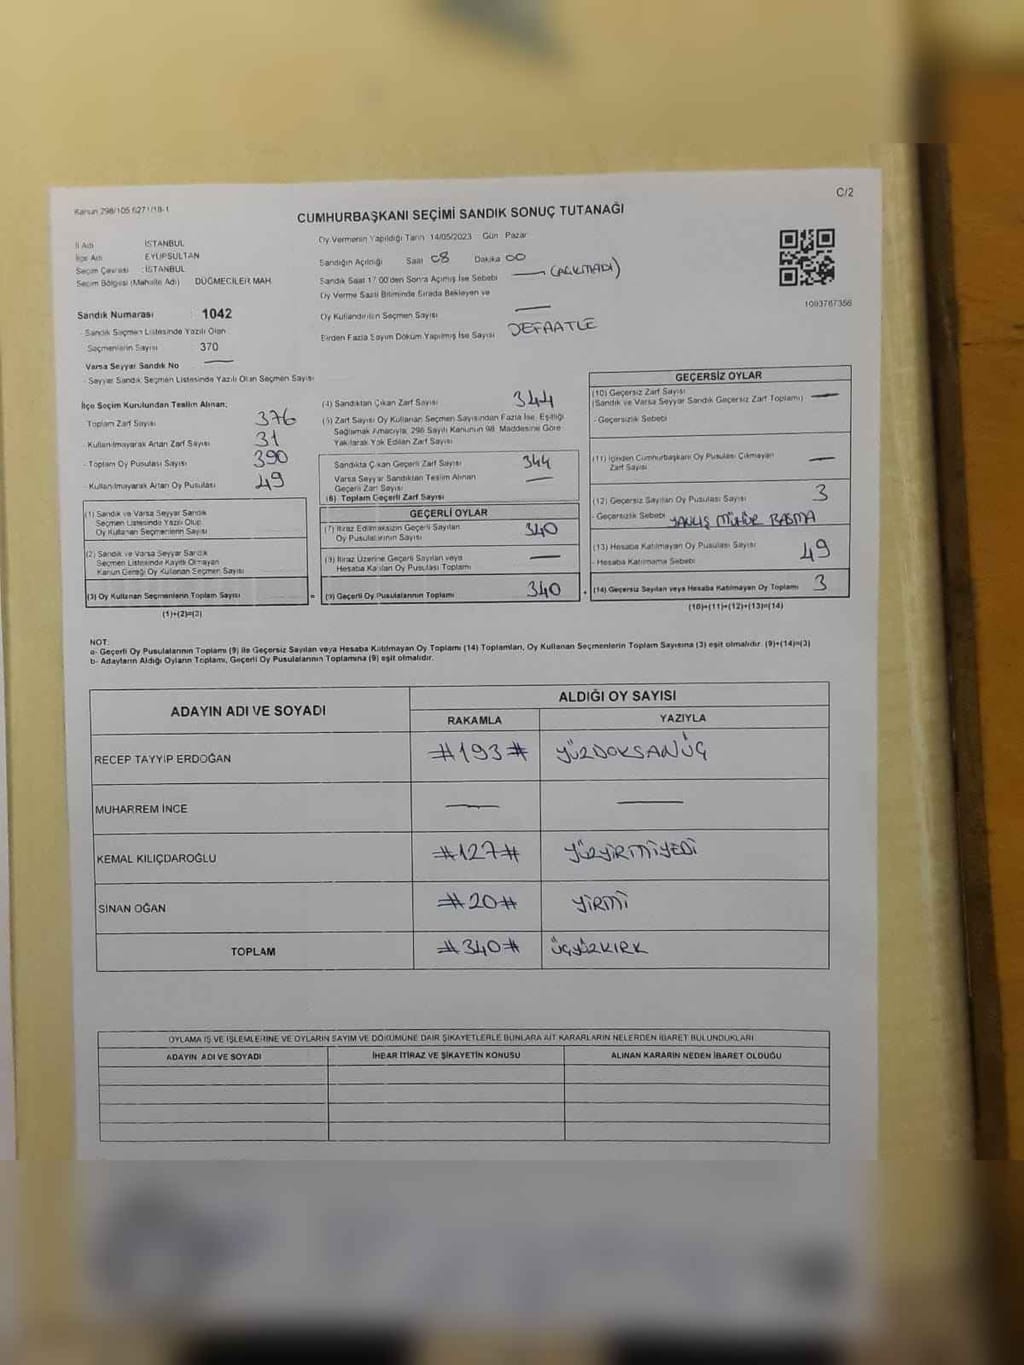 Kanun 298/105 6271/18-1
C/2
CUMHURBAŞKANI SEÇİMİ SANDIK SONUÇ TUTANAĞI
İl Adı İSTANBUL
İlçe Adı EYÜPSULTAN
Seçim Çevresi : İSTANBUL
Seçim Bölgesi (Mahalle Adı) DÜĞMECİLER MAH.
Oy Vermenin Yapıldığı Tarih 14/05/2023 Gün Pazar
Sandığın Açıldığı Saat 08 Dakika 00
Sandık Saat 17 00'den Sonra Açılmış İse Sebebi — (AÇILMADI)
Oy Verme Saati Bitiminde Sırada Bekleyen ve
Oy Kullandırılan Seçmen Sayısı —
Birden Fazla Sayım Döküm Yapılmış İse Sayısı DEFAATLE
1093767356
Sandık Numarası : 1042
- Sandık Seçmen Listesinde Yazılı Olan
Seçmenlerin Sayısı 370
Varsa Seyyar Sandık No —
- Seyyar Sandık Seçmen Listesinde Yazılı Olan Seçmen Sayısı
İlçe Seçim Kurulundan Teslim Alınan;
Toplam Zarf Sayısı 376
- Kullanılmayarak Artan Zarf Sayısı 31
- Toplam Oy Pusulası Sayısı 390
- Kullanılmayarak Artan Oy Pusulası 49
(1) Sandık ve Varsa Seyyar Sandık
Seçmen Listesinde Yazılı Olup
Oy Kullanan Seçmenlerin Sayısı
(2) Sandık ve Varsa Seyyar Sandık
Seçmen Listesinde Kayıtlı Olmayan
Kanun Gereği Oy Kullanan Seçmen Sayısı
(3) Oy Kullanan Seçmenlerin Toplam Sayısı
(1)+(2)=(3)
(4) Sandıktan Çıkan Zarf Sayısı 344
(5) Zarf Sayısı Oy Kullanan Seçmen Sayısından Fazla İse, Eşitliği
Sağlamak Amacıyla, 298 Sayılı Kanunun 98. Maddesine Göre
Yakılarak Yok Edilen Zarf Sayısı
Sandıkta Çıkan Geçerli Zarf Sayısı 344
Varsa Seyyar Sandıktan Teslim Alınan
Geçerli Zarf Sayısı —
(6) Toplam Geçerli Zarf Sayısı
GEÇERLİ OYLAR
(7) İtiraz Edilmeksizin Geçerli Sayılan
Oy Pusulalarının Sayısı 340
(8) İtiraz Üzerine Geçerli Sayılan veya
Hesaba Katılan Oy Pusulası Toplamı —
(9) Geçerli Oy Pusulalarının Toplamı 340
GEÇERSİZ OYLAR
(10) Geçersiz Zarf Sayısı
(Sandık ve Varsa Seyyar Sandık Geçersiz Zarf Toplamı) —
- Geçersizlik Sebebi
(11) İçinden Cumhurbaşkanı Oy Pusulası Çıkmayan
Zarf Sayısı —
(12) Geçersiz Sayılan Oy Pusulası Sayısı 3
- Geçersizlik Sebebi YANLIŞ MÜHÜR BASMA
(13) Hesaba Katılmayan Oy Pusulası Sayısı 49
- Hesaba Katılmama Sebebi
(14) Geçersiz Sayılan veya Hesaba Katılmayan Oy Toplamı 3
(10)+(11)+(12)+(13)=(14)
NOT:
a- Geçerli Oy Pusulalarının Toplamı (9) ile Geçersiz Sayılan veya Hesaba Katılmayan Oy Toplamı (14) Toplamları, Oy Kullanan Seçmenlerin Toplam Sayısına (3) eşit olmalıdır. (9)+(14)=(3)
b- Adayların Aldığı Oyların Toplamı, Geçerli Oy Pusulalarının Toplamına (9) eşit olmalıdır.
ADAYIN ADI VE SOYADI ALDIĞI OY SAYISI
RAKAMLA YAZIYLA
RECEP TAYYİP ERDOĞAN #193# YÜZDOKSANÜÇ
MUHARREM İNCE — —
KEMAL KILIÇDAROĞLU #127# YÜZYİRMİYEDİ
SİNAN OĞAN #20# YİRMİ
TOPLAM #340# ÜÇYÜZKIRK
OYLAMA İŞ VE İŞLEMLERİNE VE OYLARIN SAYIM VE DÖKÜMÜNE DAİR ŞİKAYETLERLE BUNLARA AİT KARARLARIN NELERDEN İBARET BULUNDUKLARI
ADAYIN ADI VE SOYADI İHBAR İTİRAZ VE ŞİKAYETİN KONUSU ALINAN KARARIN NEDEN İBARET OLDUĞU